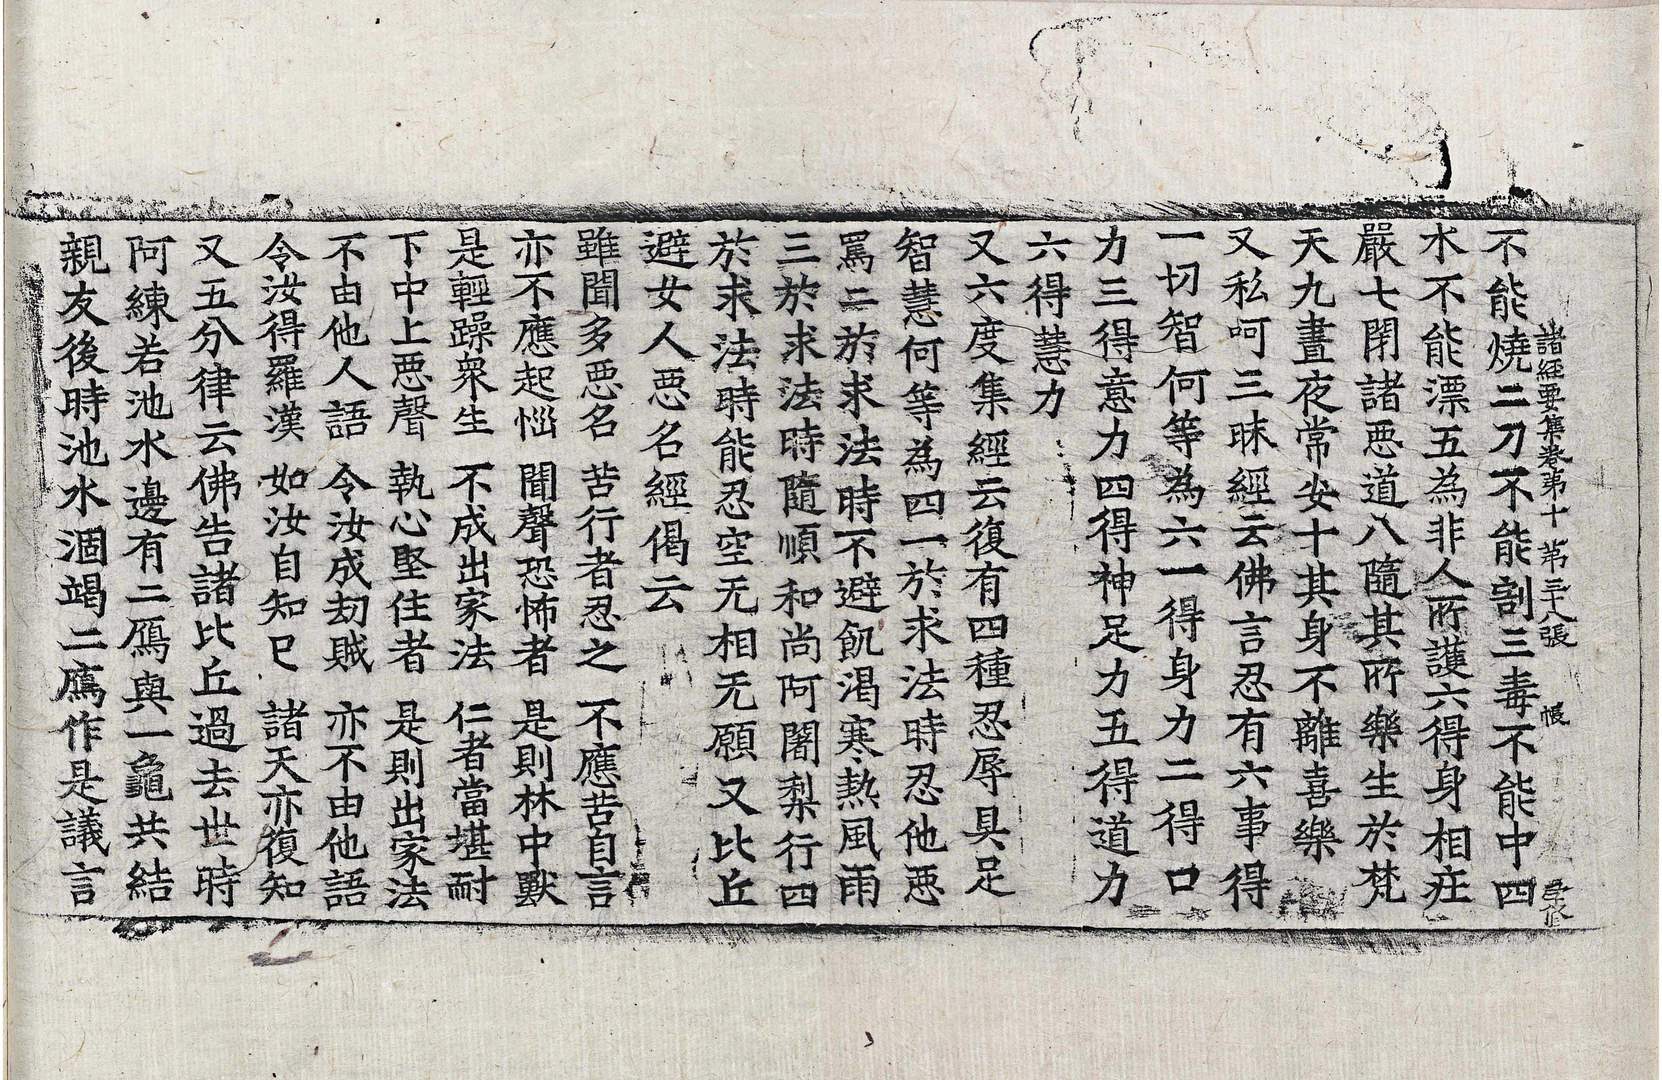 諸經要集卷第十 第三十八張 帳
不能燒二刀不能割三毒不能中四
水不能漂五為非人所護六得身相莊
嚴七閉諸惡道八隨其所樂生於梵
天九晝夜常安十其身不離喜樂
又私呵三昧經云佛言忍有六事得
一切智何等為六一得身力二得口
力三得意力四得神足力五得道力
六得慧力
又六度集經云復有四種忍辱具足
智慧何等為四一於求法時忍他惡
罵二於求法時不避飢渴寒熱風雨
三於求法時隨順和尚阿闍梨行四
於求法時能忍空无相无願又比丘
避女人惡名經偈云
雖聞多惡名 苦行者忍之 不應苦自言
亦不應起惱 聞聲恐怖者 是則林中獸
是輕躁衆生 不成出家法 仁者當堪耐
下中上惡聲 執心堅住者 是則出家法
不由他人語 令汝成劫賊 亦不由他語
令汝得羅漢 如汝自知已 諸天亦復知
又五分律云佛告諸比丘過去世時
阿練若池水邊有二鴈與一龜共結
親友後時池水涸竭二鴈作是議言